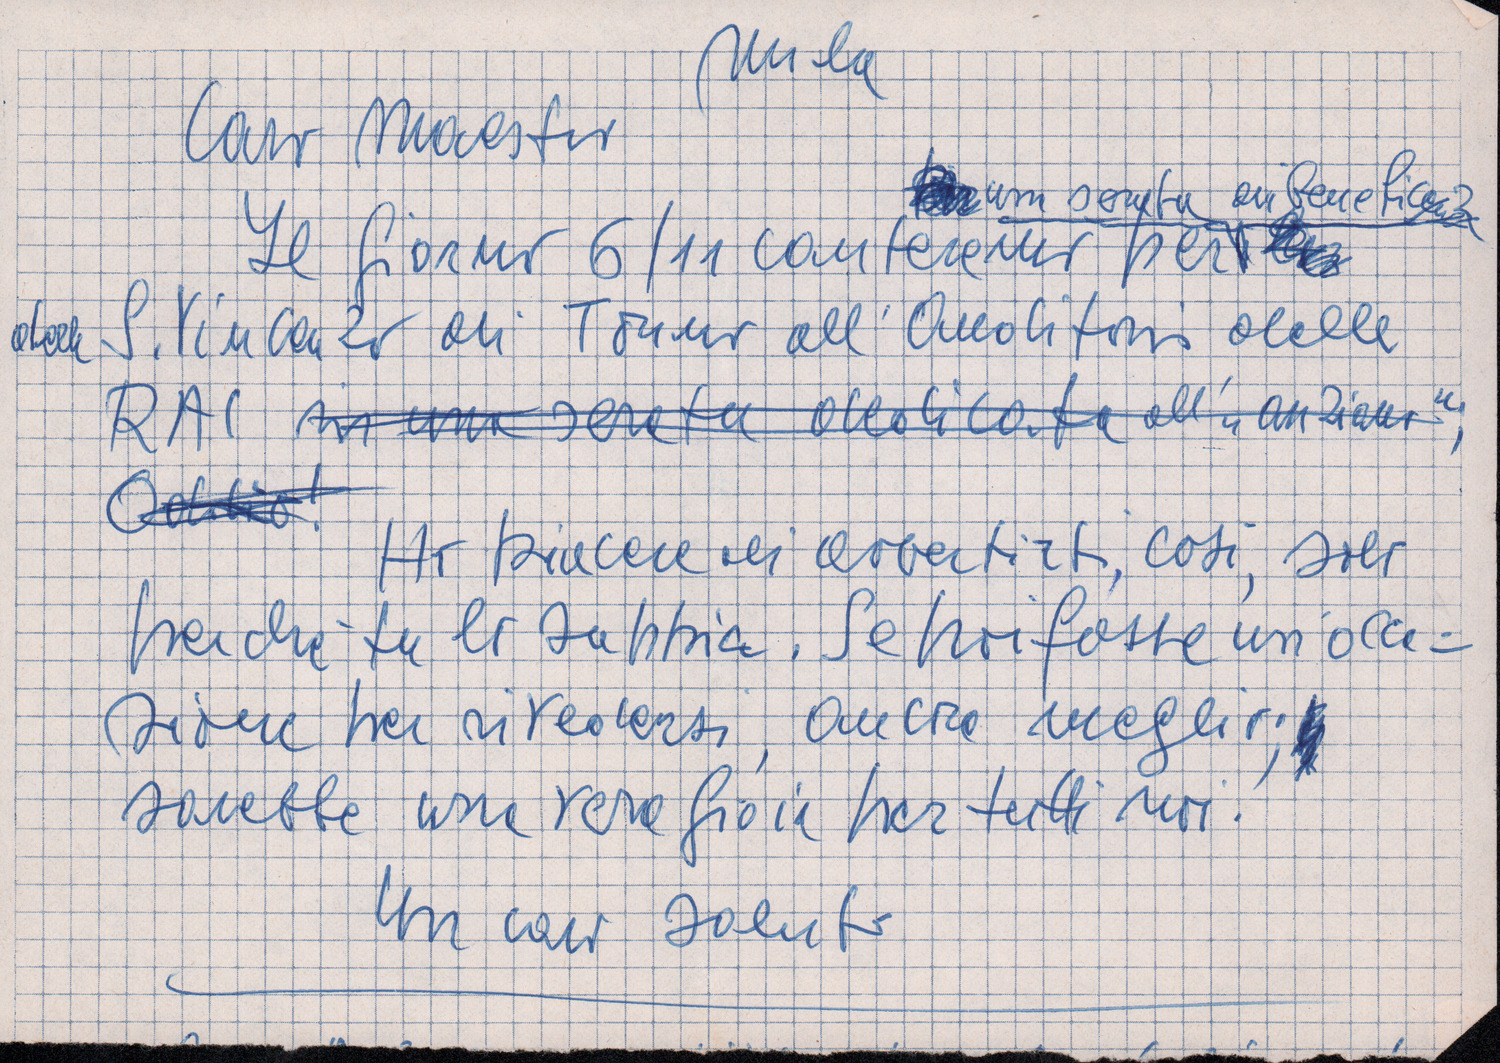 Mila
Caro Maestro
una serata di beneficenza
Il giorno 6/11 canteremo per
della S. Vincenzo di Torino all'Auditorio della
RAI in una serata dedicata all'"anziano";
Ho piacere di avvertirti, così, solo
perchè tu lo sappia. Se poi fosse un'occa=
sione per rivederci, ancora meglio;
sarebbe una vera gioia per tutti noi.
Un caro saluto